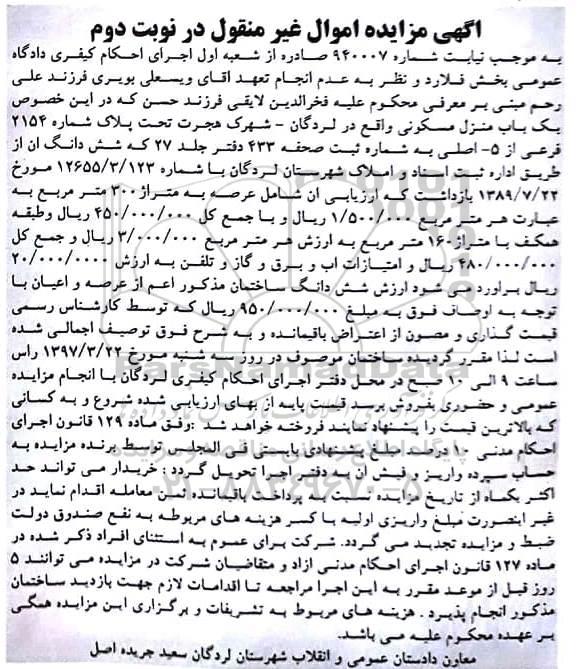 اگهی مزایده اموال غیر منقول در نوبت دوم
به موجب نیابت شماره ۹۴۰۰۰۷ صادره از شعبه اول اجرای احکام کیفری دادگاه
عمومی بخش فلارد و نظر به عدم انجام تعهد اقای ویسعلی بویری فرزند علی
رحم مبنی بر معرفی محکوم علیه فخرالدین لایقی فرزند حسن که در این خصوص
یک باب منزل مسکونی واقع در لردگان - شهرک هجرت تحت پلاک شماره ۲۱۵۴
فرعی از ۵- اصلی به شماره ثبت صفحه ۴۳۳ دفتر جلد ۲۷ که شش دانگ ان از
طریق اداره ثبت اسناد و املاک شهرستان لردگان با شماره ۱۲۶۵۵/۳/۱۲۳ مورخ
۱۳۸۹/۷/۲۲ بازداشت که ارزیابی ان شامل عرصه به متراژ ۳۰۰ متر مربع به
عبارت هر متر مربع ۱/۵۰۰/۰۰۰ ریال و با جمع کل ۴۵۰/۰۰۰/۰۰۰ ریال وطبقه
همکف با متراژ ۱۶۰ متر مربع به ارزش هر متر مربع ۳/۰۰۰/۰۰۰ ریال و جمع کل
۴۸۰/۰۰۰/۰۰۰ ریال و امتیازات اب و برق و گاز و تلفن به ارزش ۲۰/۰۰۰/۰۰۰
ریال براورد می شود ارزش شش دانگ ساختمان مذکور اعم از عرصه و اعیان با
توجه به اوصاف فوق به مبلغ ۹۵۰/۰۰۰/۰۰۰ ریال که توسط کارشناس رسمی
قیمت گذاری و مصون از اعتراض باقیمانده و به شرح فوق توصیف اجمالی شده
است لذا مقرر گردیده ساختمان موصوف در روز سه شنبه مورخ ۱۳۹۷/۳/۲۲ راس
ساعت ۹ الی ۱۰ صبح در محل دفتر اجرای احکام کیفری لردگان با انجام مزایده
عمومی و حضوری بفروش برسد قیمت پایه از بهای ارزیابی شده شروع و به کسانی
که بالاترین قیمت را پیشنهاد نمایند فروخته خواهد شد :وفق ماده ۱۲۹ قانون اجرای
احکام مدنی ۱۰ درصد مبلغ پیشنهادی بایستی فی المجلس توسط برنده مزایده به
حساب سپرده واریز و فیش ان به دفتر اجرا تحویل گردد : خریدار می تواند حد
اکثر یکماه از تاریخ مزایده نسبت به پرداخت باقیمانده ثمن معامله اقدام نماید در
غیر اینصورت مبلغ واریزی اولیه با کسر هزینه های مربوطه به نفع صندوق دولت
ضبط و مزایده تجدید می گردد. شرکت برای عموم به استثنای افراد ذکر شده در
ماده ۱۲۷ قانون اجرای احکام مدنی ازاد و متقاضیان شرکت در مزایده می توانند ۵
روز قبل از موعد مقرر به این اجرا مراجعه تا اقدامات لازم جهت بازدید ساختمان
مذکور انجام پذیرد . هزینه های مربوط به تشریفات و برگزاری این مزایده همگی
بر عهده محکوم علیه می باشد.
معاون دادستان عمومی و انقلاب شهرستان لردگان سعید جریده اصل
ParsNamadData
۰۲۱-۸۸۳۴۹۶۷۰-۵